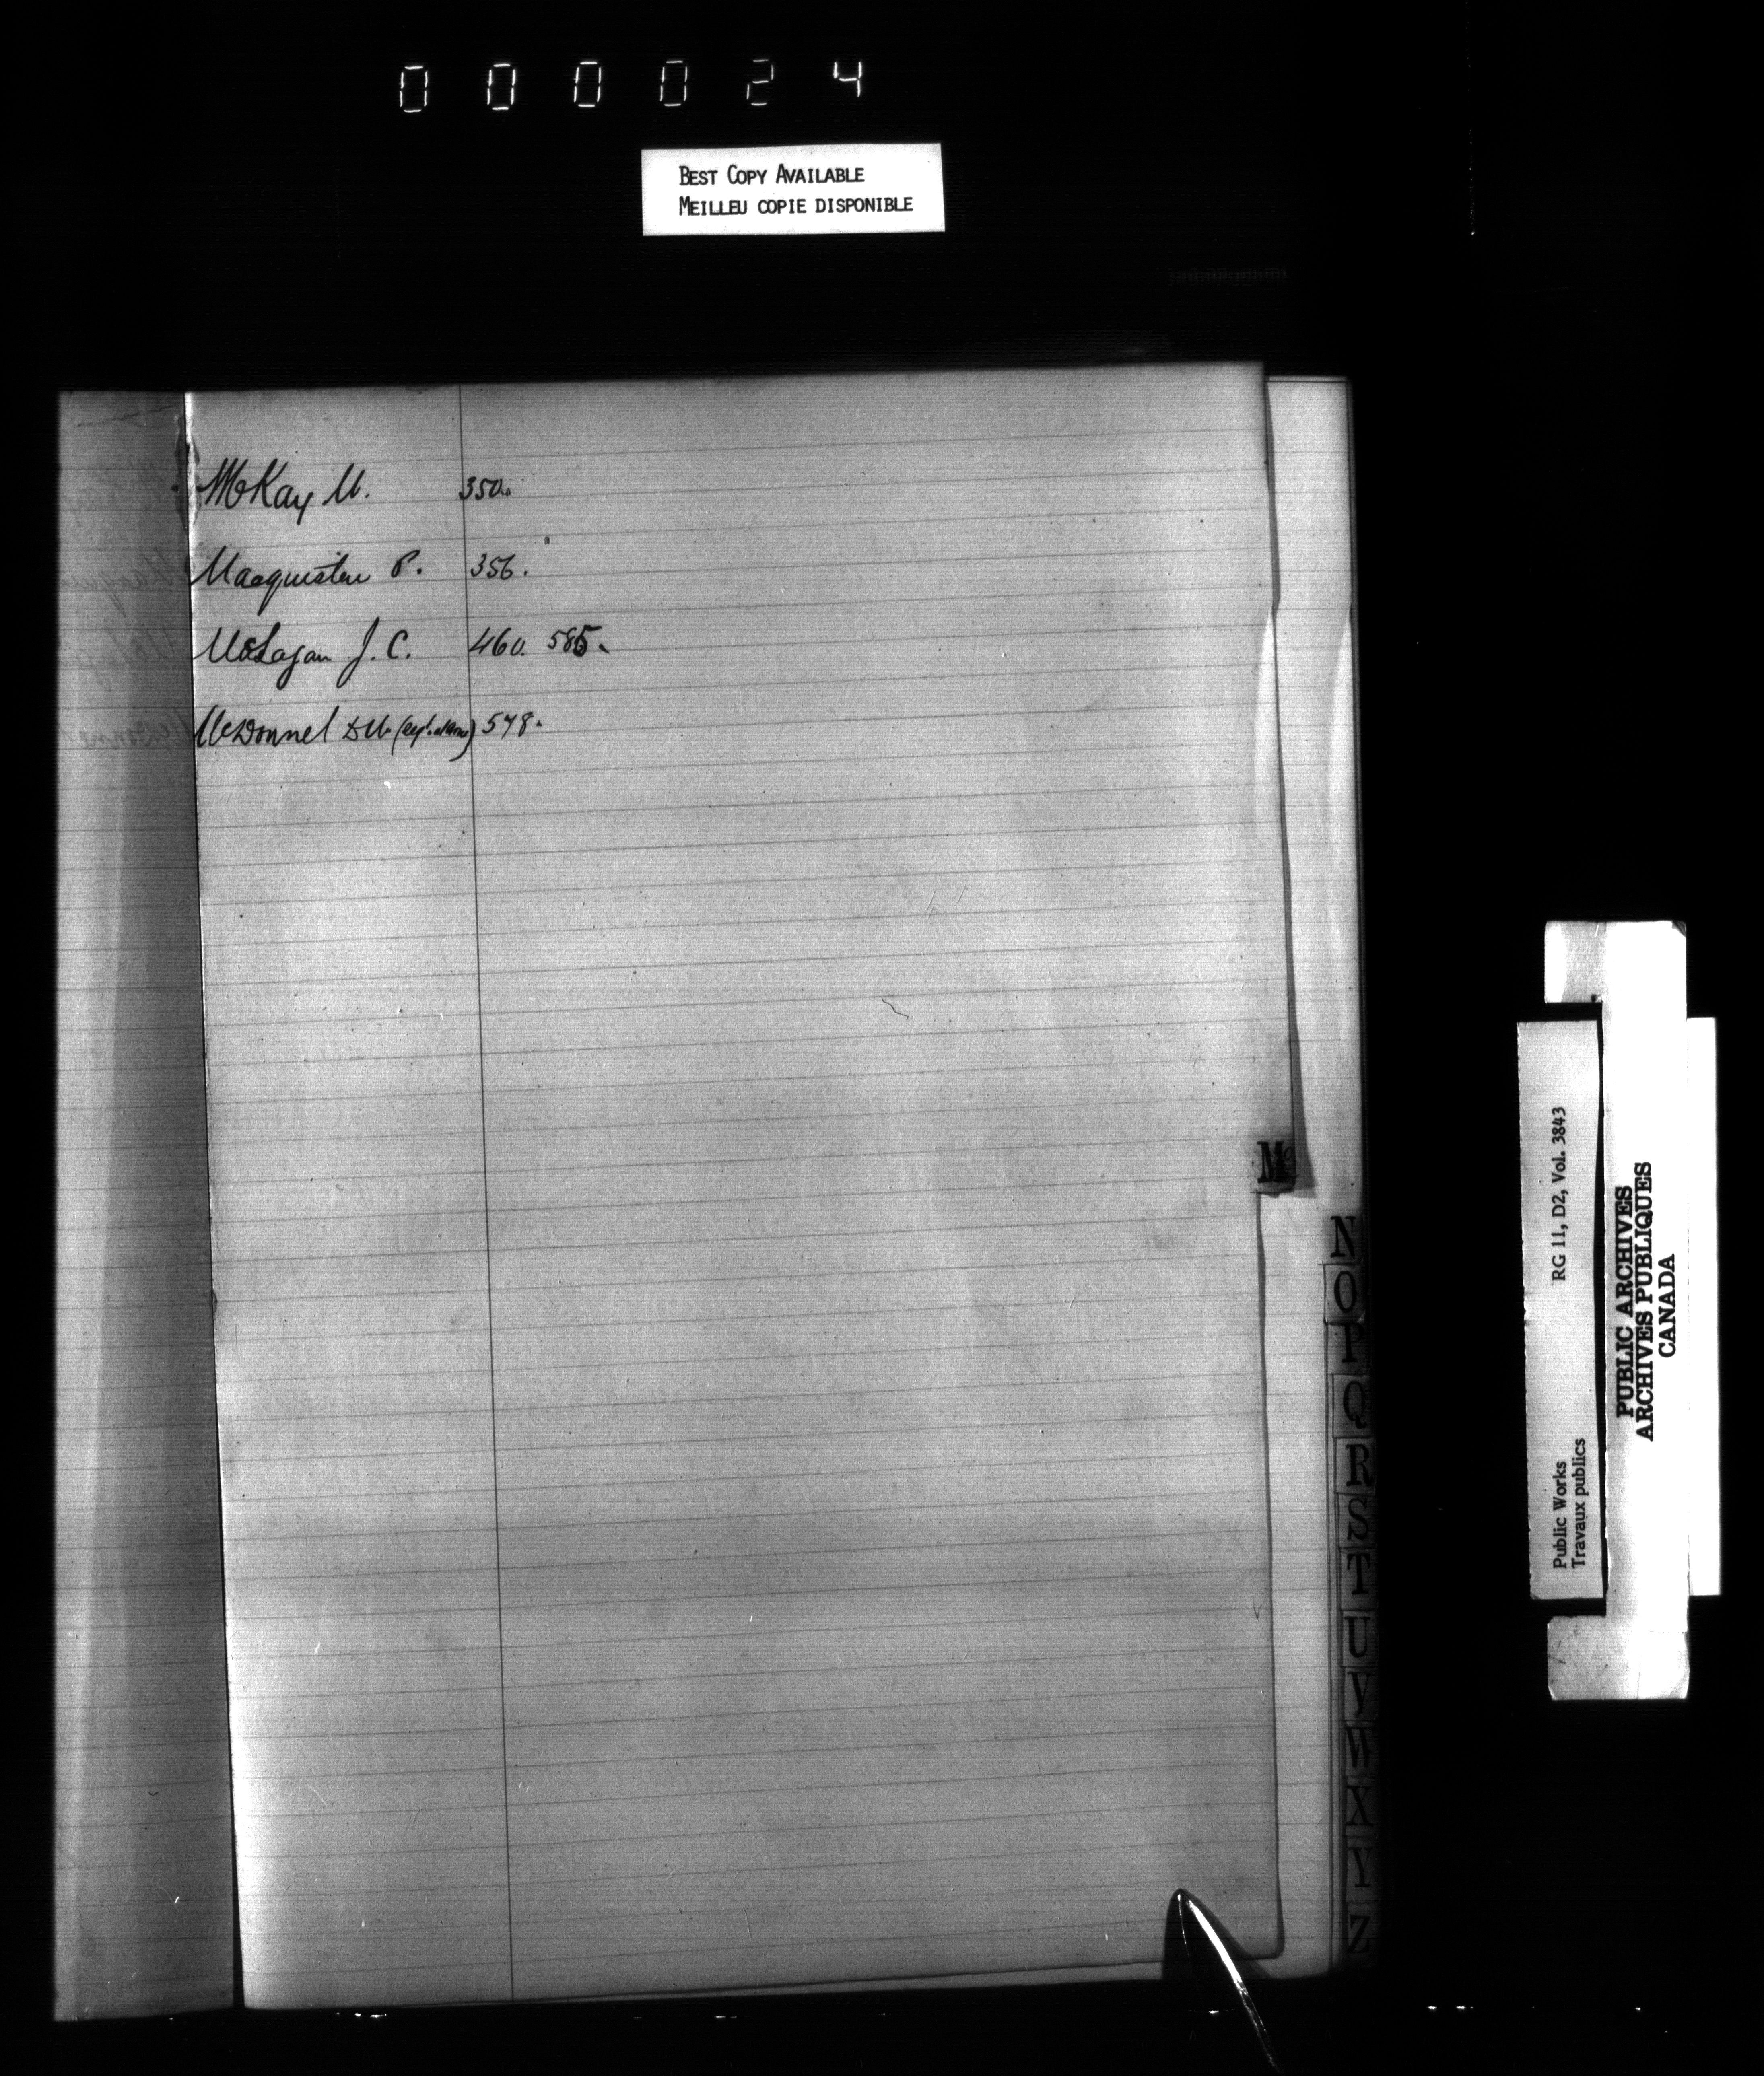 000024
BEST COPY AVAILABLE
MEILLEU COPIE DISPONIBLE
McKay M. 350.
Macquisten P. 356.
McLagan J. C. 460. 585.
McDonnel 548.
Mc
N
O
P
Q
R
S
T
U
V
W
X
Y
Z
Public Works RG 11, D2, Vol. 3843
Travaux publics
PUBLIC ARCHIVES
ARCHIVES PUBLIQUES
CANADA